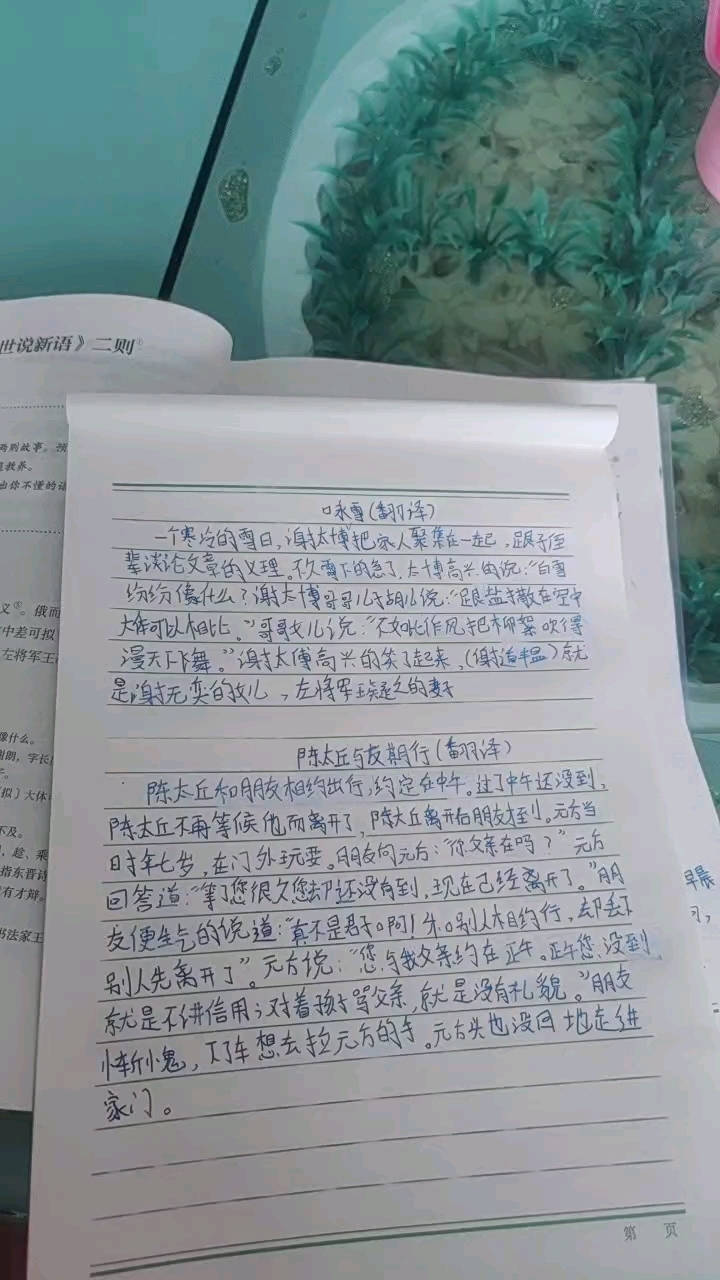 世说新语》二则
两则故事。预
教养。
出你不懂的语
义⑤。俄而
中差可拟
左将军王
像什么。
谢朗,字长
拟)大体
不及。
,趁、乘
指东晋诗
有才辩。
书法家王
咏雪(翻译)
一个寒冷的雪日,谢太傅把家人聚集在一起,跟子侄
辈谈论文章的义理。不久雪下的急了,太傅高兴的说:“白雪
纷纷像什么?谢太傅哥哥儿子胡儿说:“跟盐撒在空中
大体可以相比。”哥哥女儿说:“不如比作风把柳絮吹得
漫天飞舞。”谢太傅高兴的笑了起来,(谢道韫)就
是谢无奕的女儿,左将军王凝之的妻子
陈太丘与友期行(翻译)
陈太丘和朋友相约出行,约定在中午。过了中午还没到,
陈太丘不再等候他而离开了,陈太丘离开后朋友才到。元方当
时年七岁,在门外玩耍。朋友问元方:“你父亲在吗?”元方
回答道:“等了您很久您却还没有到,现在已经离开了。”朋
友便生气的说道:“真不是君子啊!和别人相约行,却丢下
别人先离开了”。元方说:“您与我父亲约在正午。正午您没到,
就是不讲信用;对着孩子骂父亲,就是没有礼貌。”朋友
惭愧,下了车想去拉元方的手。元方头也没回地走进
家门。
早晨
习,
第 页